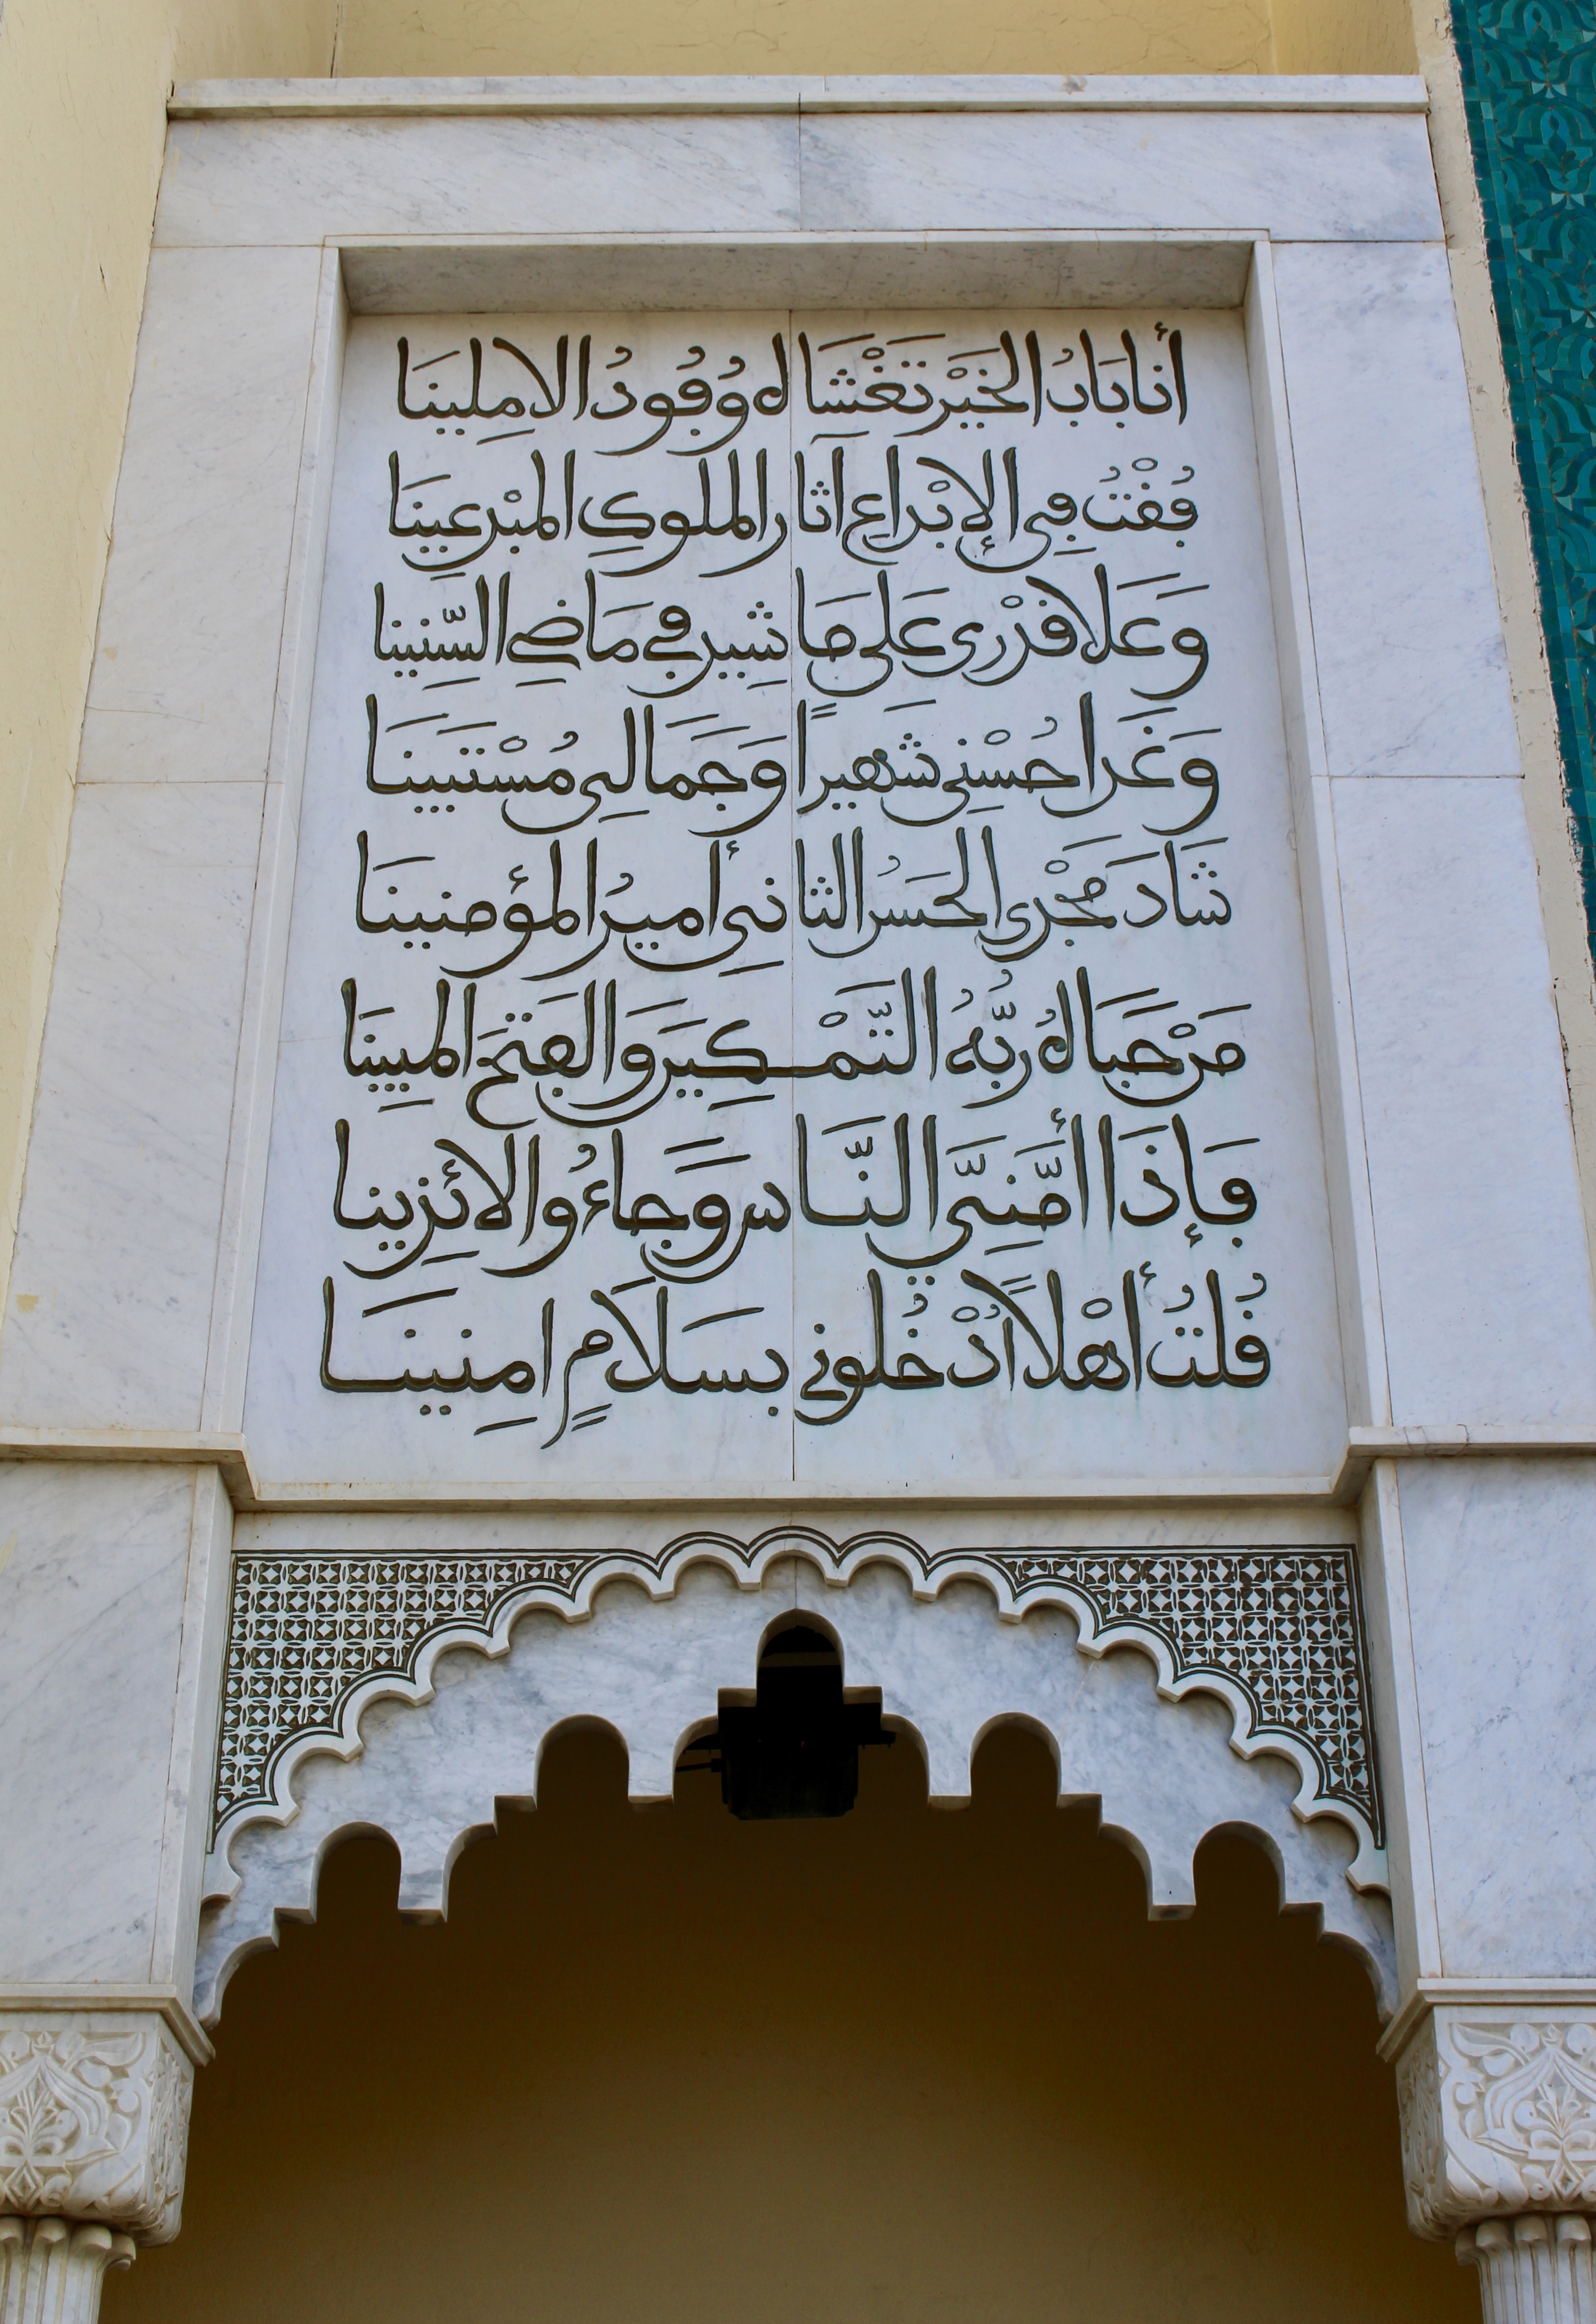 أنا بَابُ الخَيْر تَغْشَاهُ وُفُودُ الامِلِينَا
فُقْتُ فِي الإِبْدَاعِ آثَارَ المُلوكِ المبْدعِينَا
وَعَلا قَدْرِي عَلى مَا شِيدَ في مَاضِي السِّنِينا
وَغَدا حُسْنِي شَهيراً وَجَمَالِي مُسْتَبِينَا
شَادَ مَجْدِي الحَسَنُ الثانِي أميرُ المؤمنينَا
مَرْحَبا لهُ ربُّهُ التَّمْكِينَ وَالفَتْحَ المبِينَا
فَإِذَا أمَّنِيَ النَّاس وَجَاءُوا لائِذِينا
قُلتُ أهْلاً اُدْخُلوني بسَلاَمٍ امِنِينَا